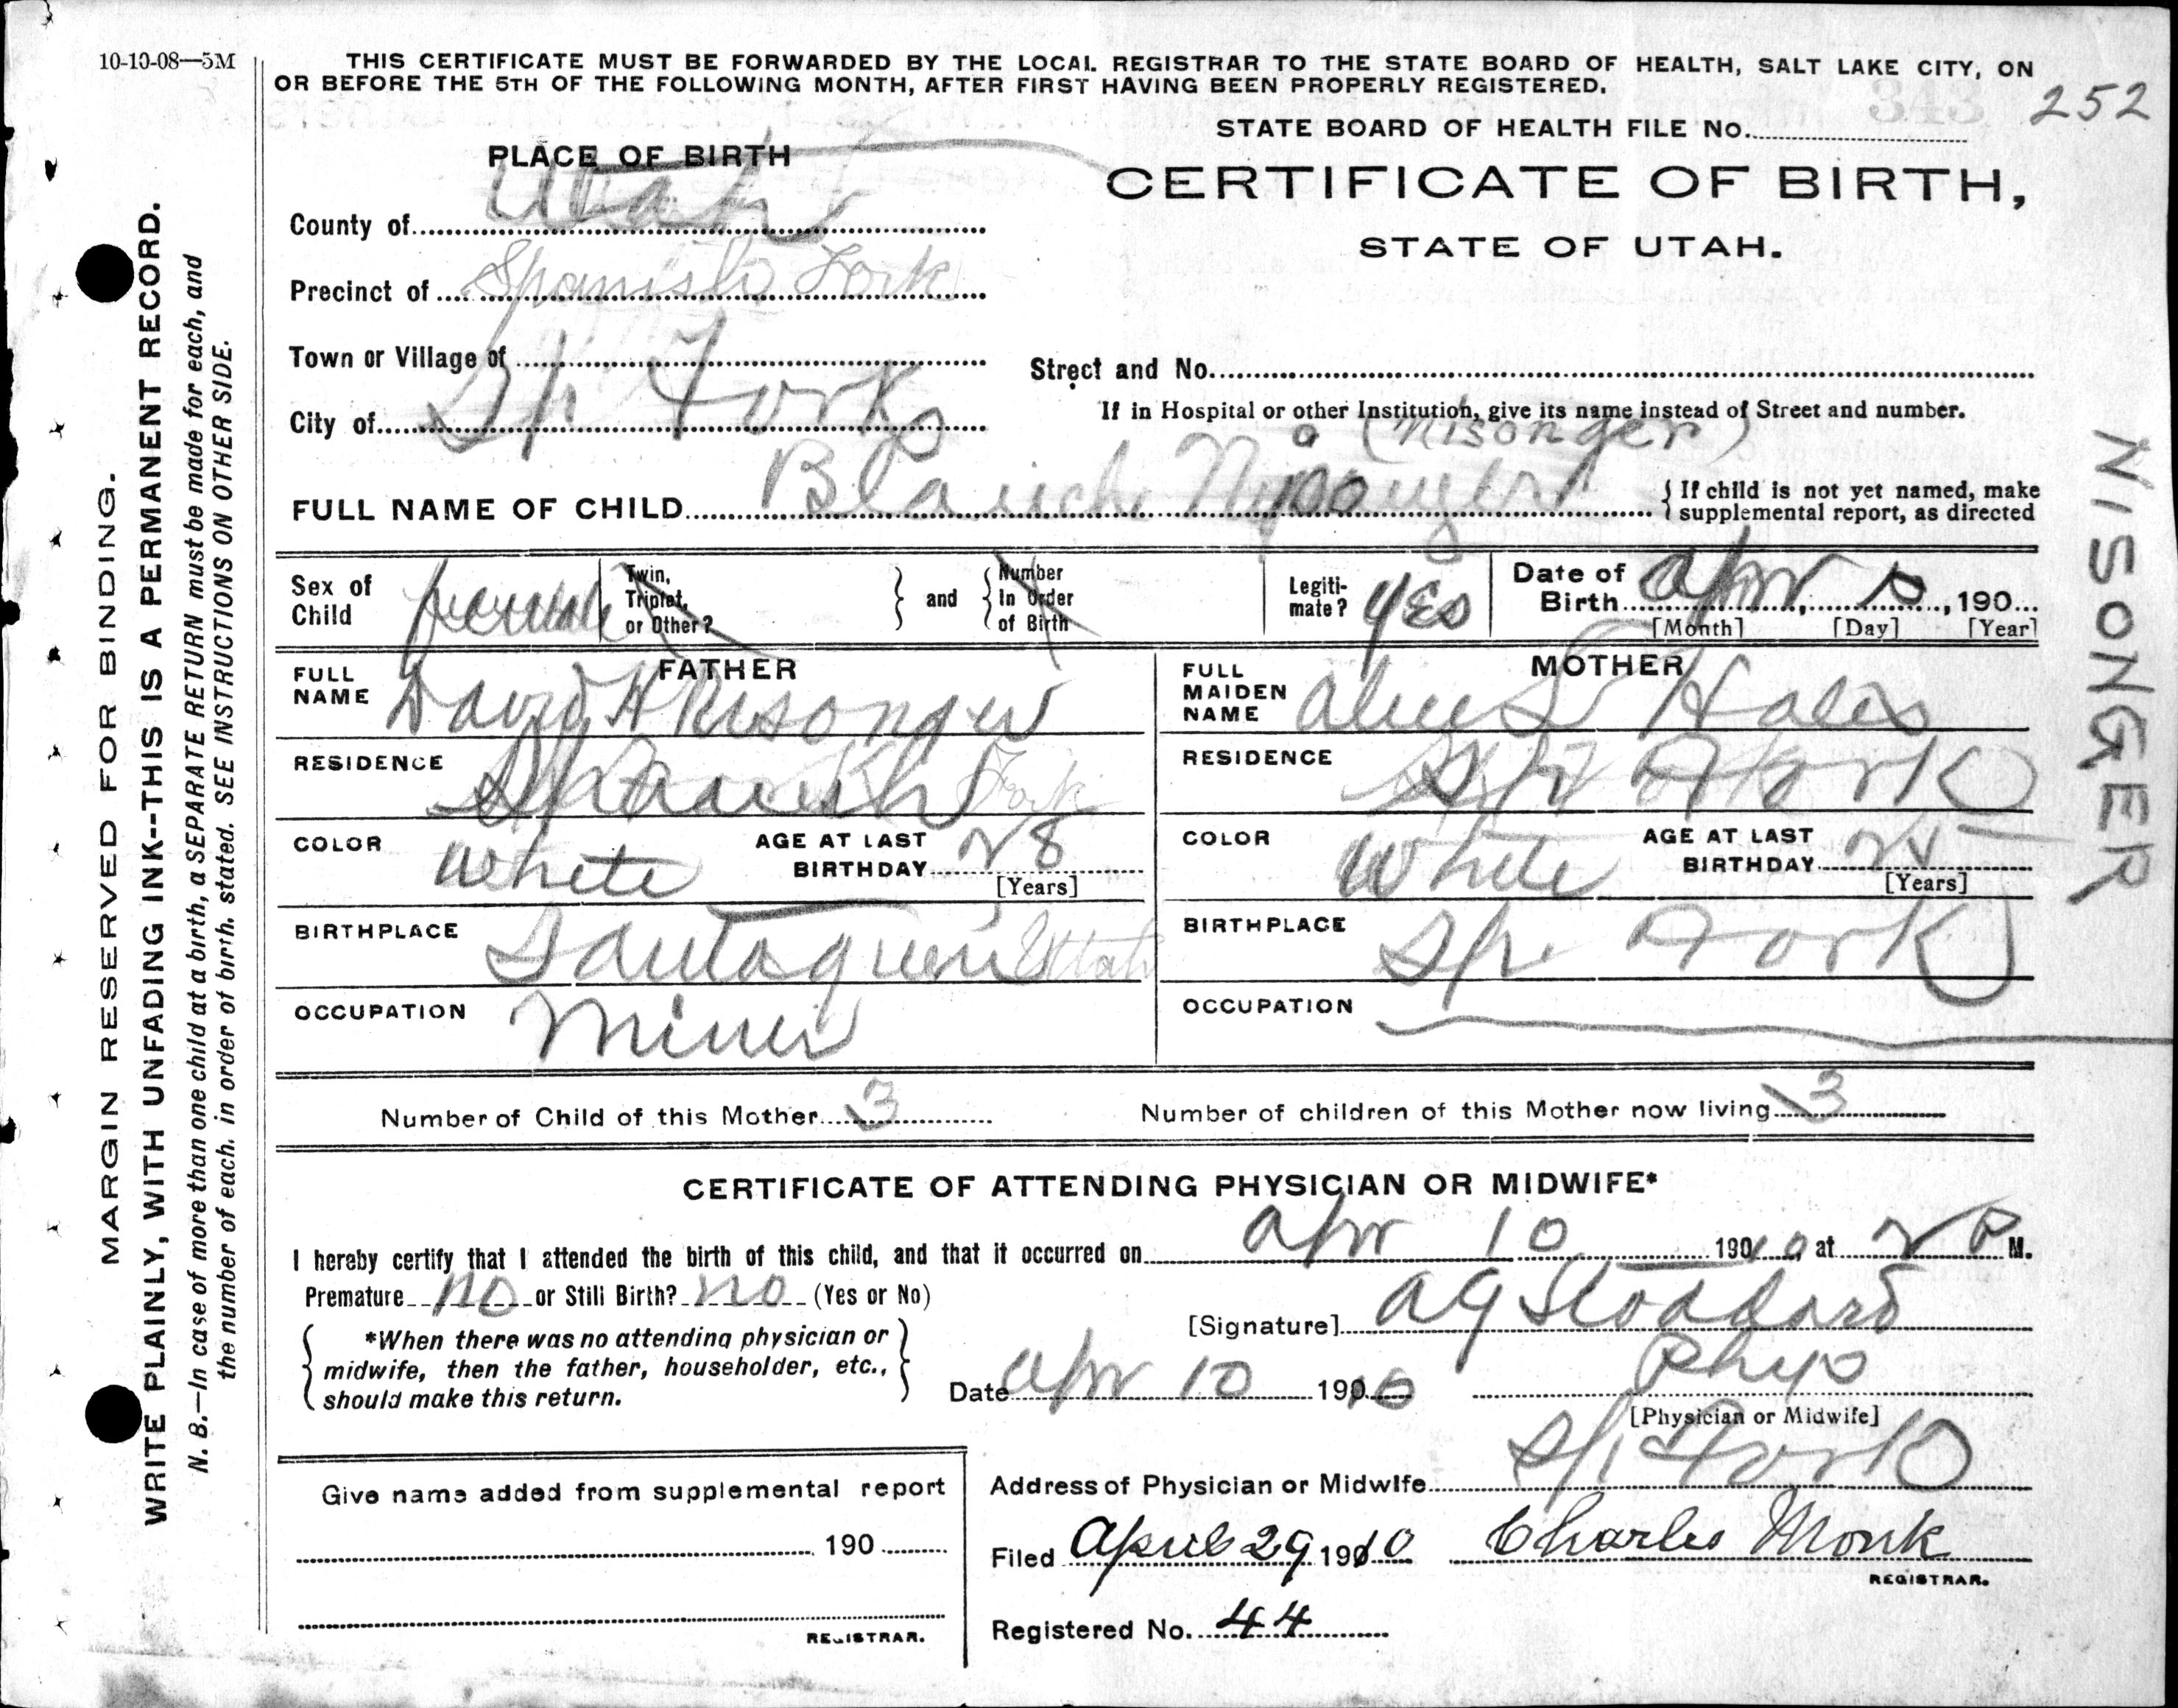 10-10-08—5M
THIS CERTIFICATE MUST BE FORWARDED BY THE LOCAL REGISTRAR TO THE STATE BOARD OF HEALTH, SALT LAKE CITY, ON
OR BEFORE THE 5TH OF THE FOLLOWING MONTH, AFTER FIRST HAVING BEEN PROPERLY REGISTERED.
252
STATE BOARD OF HEALTH FILE No.
343
PLACE OF BIRTH
CERTIFICATE OF BIRTH,
STATE OF UTAH.
County of Utah
Precinct of Spanish Fork
Town or Village of
Street and No.
City of Sp Fork
If in Hospital or other Institution, give its name instead of Street and number.
(Nisonger)
FULL NAME OF CHILD Blanche
{ If child is not yet named, make
supplemental report, as directed
Sex of Child female
Twin, Triplet, or Other?
and
Number In Order of Birth
Legitimate? Yes
Date of Birth Apr, , 190
[Month] [Day] [Year]
FATHER
FULL NAME David H Nisonger
RESIDENCE Spanish Fork
COLOR White
AGE AT LAST BIRTHDAY 28
[Years]
BIRTHPLACE Santaquin Utah
OCCUPATION Miner
MOTHER
FULL MAIDEN NAME Alice S Hales
RESIDENCE Sp Fork
COLOR White
AGE AT LAST BIRTHDAY
[Years]
BIRTHPLACE Sp. Fork
OCCUPATION
Number of Child of this Mother 3
Number of children of this Mother now living 3
CERTIFICATE OF ATTENDING PHYSICIAN OR MIDWIFE*
I hereby certify that I attended the birth of this child, and that it occurred on Apr 10 1910, at 2 P M.
Premature no or Still Birth? no (Yes or No)
[Signature] A G Stoddard
*When there was no attending physician or
midwife, then the father, householder, etc.,
should make this return.
Date Apr 10 1910
Phys
[Physician or Midwife]
Address of Physician or Midwife Sp Fork
Give name added from supplemental report
190
REGISTRAR.
Filed April 29 1910 Charles Monk
REGISTRAR.
Registered No. 44
MARGIN RESERVED FOR BINDING.
WRITE PLAINLY, WITH UNFADING INK--THIS IS A PERMANENT RECORD.
N. B.—In case of more than one child at a birth, a SEPARATE RETURN must be made for each, and
the number of each. in order of birth. stated. SEE INSTRUCTIONS ON OTHER SIDE.
NISONGER